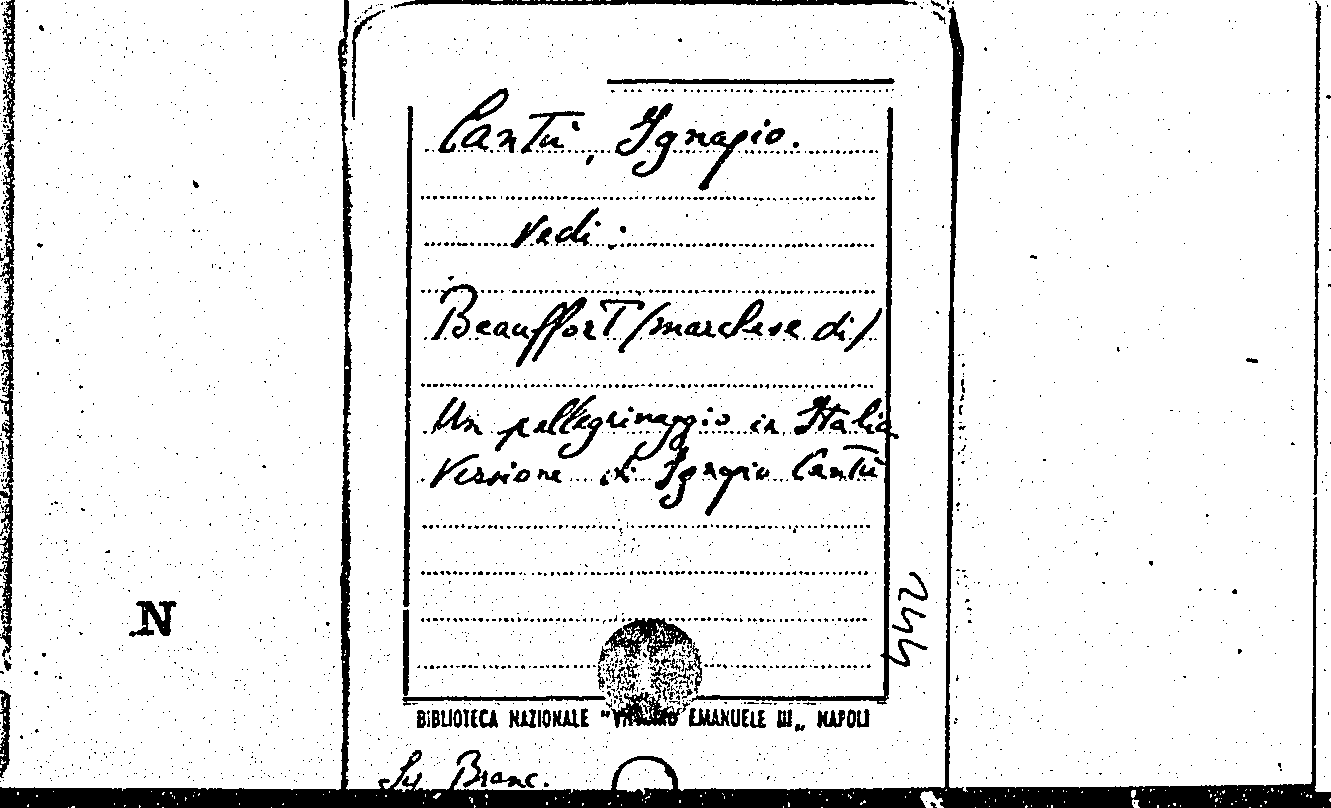 Cantù, Ignazio.
Vedi:
Beauffort (marchese di)
Un pellegrinaggio in Italia
Versione di Ignazio Cantù
N
BIBLIOTECA NAZIONALE "VITTORIO EMANUELE III„ NAPOLI
Branc.